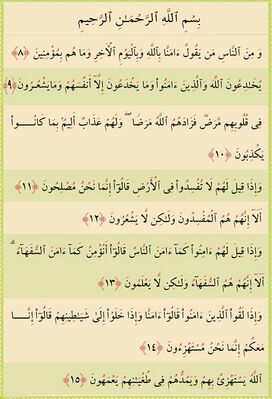 بِسْمِ اللَّهِ ٱلرَّحْمَـٰنِ ٱلرَّحِيمِ
وَ مِنَ النَّاسِ مَن يَقُولُ ءَامَنَّا بِاللَّهِ وَبِالْيَوْمِ الْأَخِرِ وَمَا هُم بِمُؤْمِنِينَ ﴿٨﴾
يُخَـٰدِعُونَ اللَّهَ وَالَّذِينَ ءَامَنُوا۟ وَمَا يَخْدَعُونَ إِلَّآ أَنفُسَهُمْ وَمَا يَشْعُرُونَ ﴿٩﴾
فِى قُلُوبِهِم مَّرَضٌ فَزَادَهُمُ اللَّهُ مَرَضًا ۖ وَلَهُمْ عَذَابٌ أَلِيمٌۢ بِمَا كَانُـــوا۟
يَكْذِبُونَ ﴿١٠﴾
وَإِذَا قِيلَ لَهُمْ لَا تُفْسِدُوا۟ فِى الْأَرْضِ قَالُوٓا۟ إِنَّمَا نَحْنُ مُصْلِحُونَ ﴿١١﴾
أَلَآ إِنَّهُمْ هُمُ الْمُفْسِدُونَ وَلَـٰكِن لَّا يَشْعُرُونَ ﴿١٢﴾
وَإِذَا قِيلَ لَهُمْ ءَامِنُوا۟ كَمَآ ءَامَنَ النَّاسُ قَالُوٓا۟ أَنُؤْمِنُ كَمَآ ءَامَنَ السُّفَهَآءُ ۗ
أَلَآ إِنَّهُمْ هُمُ السُّفَهَآءُ وَلَـٰكِن لَّا يَعْلَمُونَ ﴿١٣﴾
وَإِذَا لَقُوا۟ الَّذِينَ ءَامَنُوا۟ قَالُوٓا۟ ءَامَنَّا وَإِذَا خَلَوْا۟ إِلَىٰ شَيَـٰطِينِهِمْ قَالُوٓا۟ إِنَّـــا
مَعَكُمْ إِنَّمَا نَحْنُ مُسْتَهْزِءُونَ ﴿١٤﴾
اللَّهُ يَسْتَهْزِئُ بِهِمْ وَيَمُدُّهُمْ فِى طُغْيَـٰنِهِمْ يَعْمَهُونَ ﴿١٥﴾